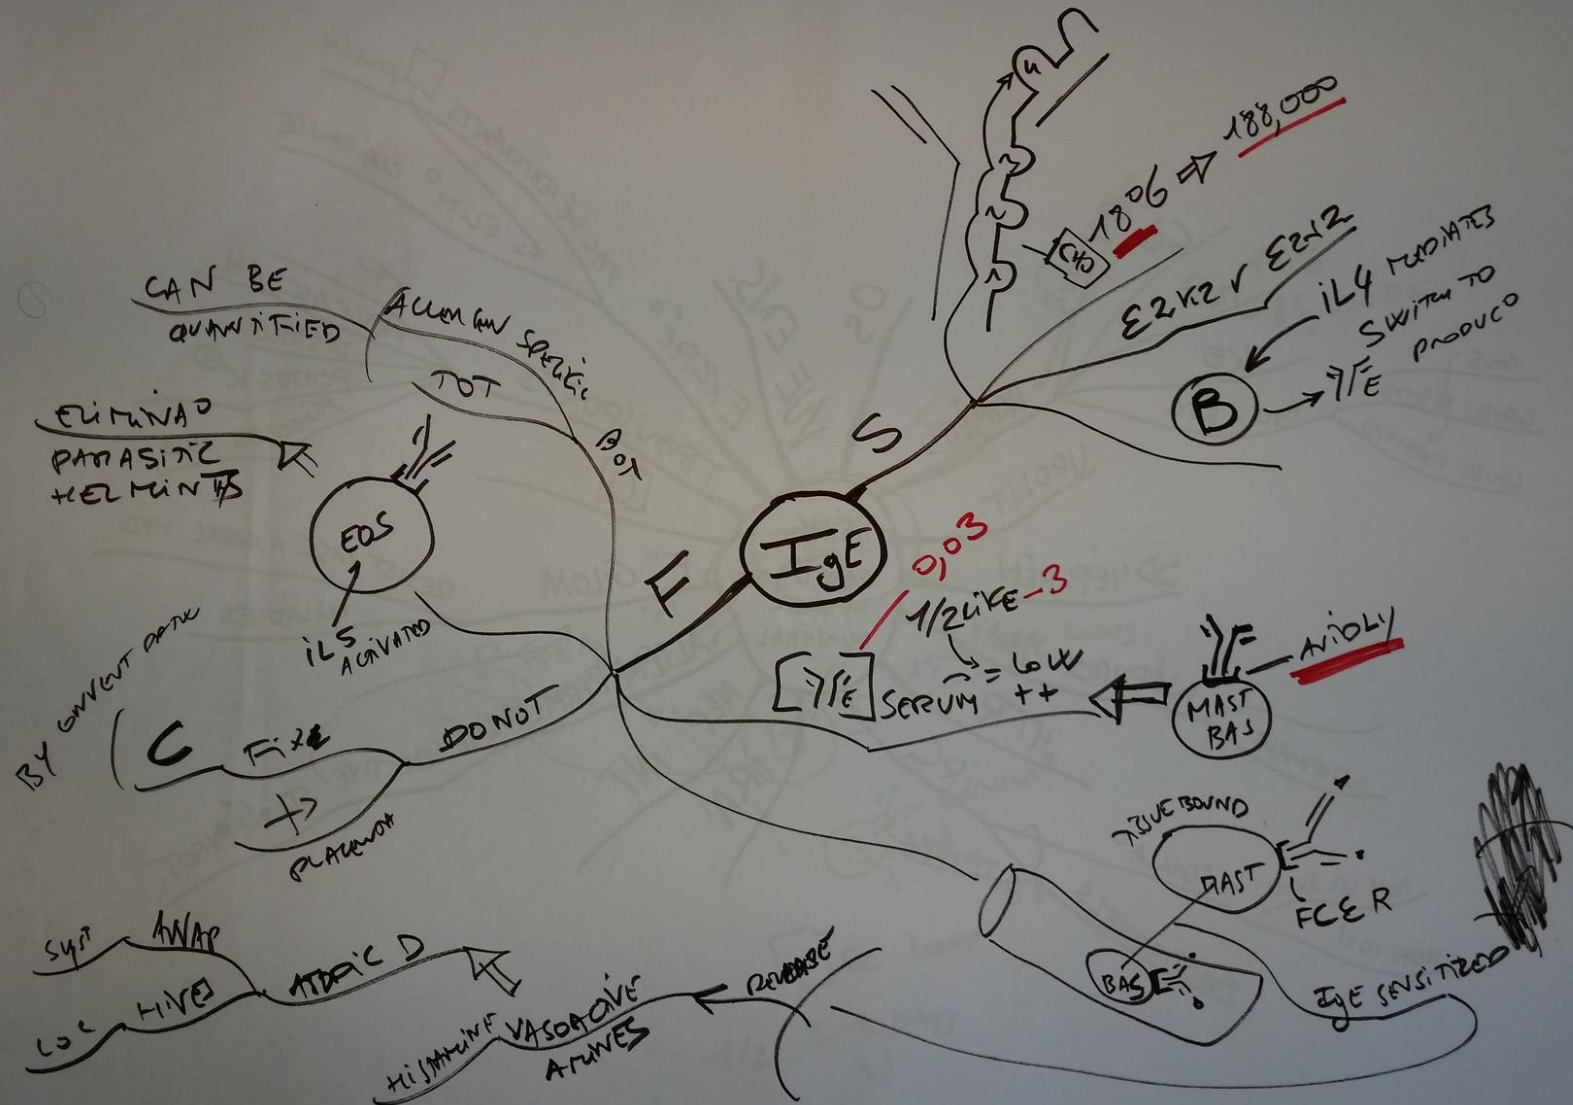 IgE
S
188,000
18%
CHO
ε2κ2 v ε2λ2
IL4 MEDIATES
SWITCH TO
PRODUCO
E
B
F
CAN BE
QUANTIFIED
ALLERGEN SPECIFIC
TOT
BOT
ELIMINAO
PARASITIC
HELMINTHS
EOS
IL5
ACTIVATED
BY CONVENT PATH
C
FIXE
DO NOT
PLACENTA
0,03
1/2 LIFE - 3
[E] SERUM = LOW
++
MAST
BAS
AVIDLY
TISSUE BOUND
MAST
FCεR
BAS
IgE SENSITIZED
RELEASE
HISTAMINE VASOACTIVE
AMINES
ATOPIC D
SYST
ANAP
LOC
HIVES